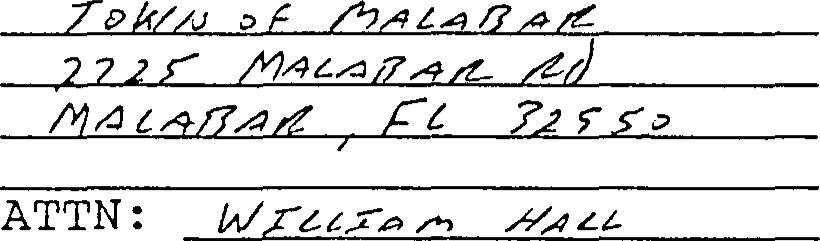 TOWN OF MALABAR
2725 MALABAR RD
MALABAR, FL 32950
ATTN: WILLIAM HALL